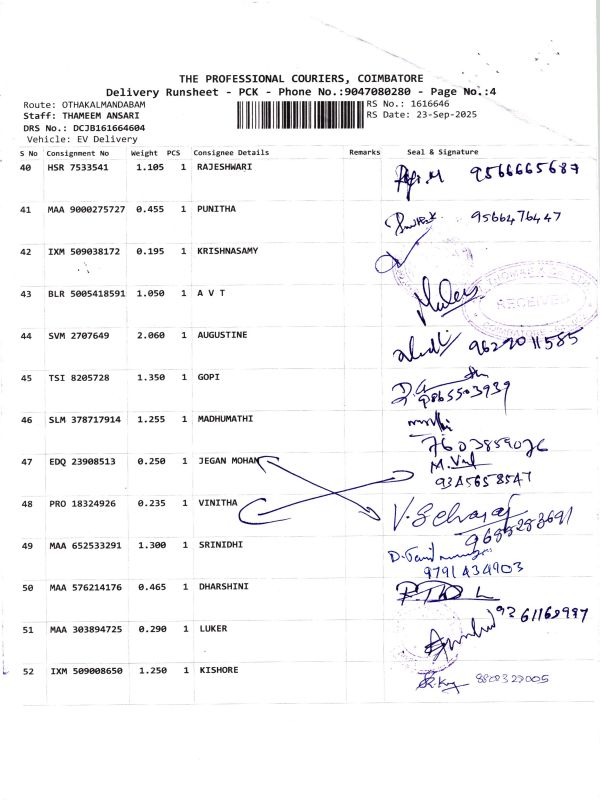 THE PROFESSIONAL COURIERS, COIMBATORE
Delivery Runsheet - PCK - Phone No.:9047080280 - Page No.:4
Route: OTHAKALMANDABAM RS No.: 1616646
Staff: THAMEEM ANSARI RS Date: 23-Sep-2025
DRS No.: DCJB161664604
Vehicle: EV Delivery
S No Consignment No Weight PCS Consignee Details Remarks Seal & Signature
40 HSR 7533541 1.105 1 RAJESHWARI 9566665687
41 MAA 9000275727 0.455 1 PUNITHA 9566476447
42 IXM 509038172 0.195 1 KRISHNASAMY
43 BLR 5005418591 1.050 1 A V T
RECEIVED
44 SVM 2707649 2.060 1 AUGUSTINE 9629011585
45 TSI 8205728 1.350 1 GOPI
9865503939
46 SLM 378717914 1.255 1 MADHUMATHI
7603859076
47 EDQ 23908513 0.250 1 JEGAN MOHAN M.
9345658547
48 PRO 18324926 0.235 1 VINITHA V. Selvaraj
49 MAA 652533291 1.300 1 SRINIDHI
9791434903
50 MAA 576214176 0.465 1 DHARSHINI
51 MAA 303894725 0.290 1 LUKER
52 IXM 509008650 1.250 1 KISHORE